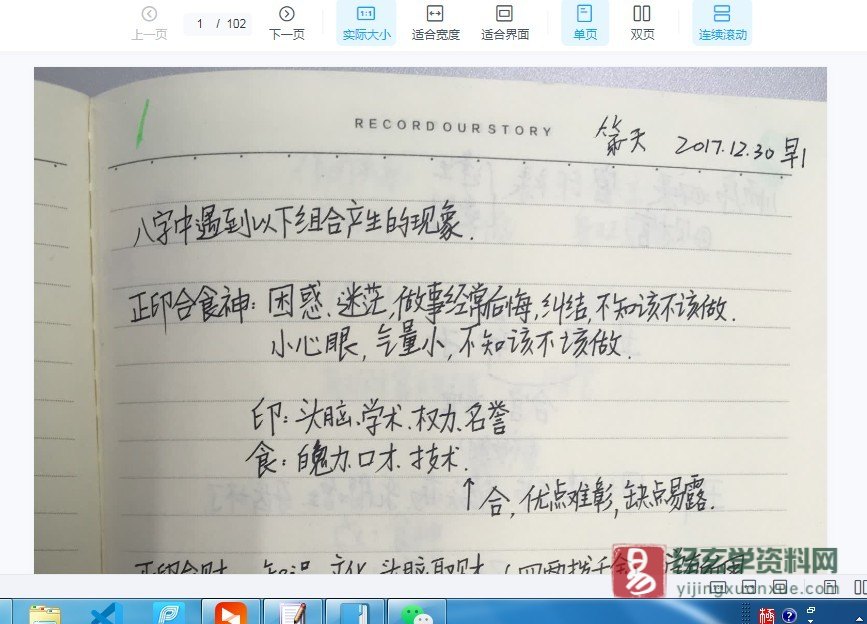 上一页
1 / 102
下一页
实际大小
适合宽度
适合界面
单页
双页
连续滚动
RECORD OUR STORY
2017.12.30 早1
八字中遇到以下组合产生的现象.
正印合食神: 困惑、迷茫,做事经常后悔,纠结,不知该不该做.
小心眼,气量小,不知该不该做.
印: 头脑、学术、权力、名誉
食: 魄力、口才、技术.
↑合,优点难彰,缺点易露.
正印合财: 知识、文化、头脑取财
易玄学资料网
yijingxuanxue.com